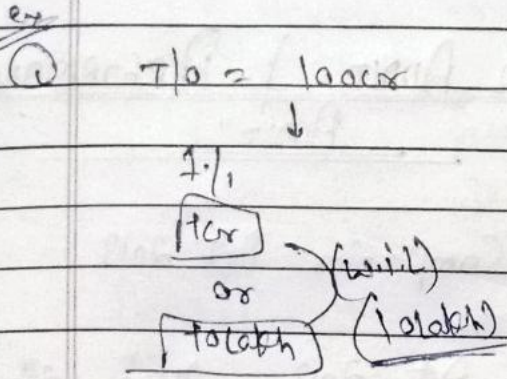 ex
① T/o = 100cr
↓
1%
1cr
or (w.i.L)
10lakh (10lakh)